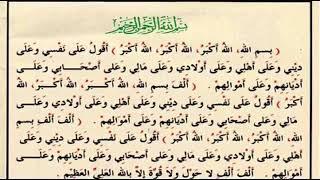 بسم الله الرحمن الرحيم
﴿ بِسْمِ اللهِ، اللهُ أَكْبَرُ، اللهُ أَكْبَرُ، اللهُ أَكْبَرُ ﴾ أَقُولُ عَلَى نَفْسِي وَعَلَى
دِيْنِي وَعَلَى أَهْلِي وَعَلَى أَوْلَادِي وَعَلَى مَالِي وَعَلَى أَصْحَابِي وَعَلَى
أَدْيَانِهِمْ وَعَلَى أَمْوَالِهِمْ . أَلْفَ بِسْمِ اللهِ، اللهُ أَكْبَرُ، اللهُ أَكْبَرُ،
اللهُ أَكْبَرُ ﴾ أَقُولُ عَلَى نَفْسِي وَعَلَى دِيْنِي وَعَلَى
أَهْلِي وَعَلَى أَوْلَادِي وَعَلَى مَالِي وَعَلَى أَصْحَابِي وَعَلَى أَدْيَانِهِمْ وَعَلَى
أَمْوَالِهِمْ . أَلْفَ أَلْفِ بِسْمِ اللهِ، اللهُ أَكْبَرُ، اللهُ أَكْبَرُ، اللهُ أَكْبَرُ ﴾ أَقُولُ عَلَى نَفْسِي وَعَلَى دِيْنِي
وَعَلَى أَهْلِي وَعَلَى أَوْلَادِي وَعَلَى مَالِي وَعَلَى أَصْحَابِي وَعَلَى أَدْيَانِهِمْ وَعَلَى
أَمْوَالِهِمْ . أَلْفَ أَلْفِ لَا حَوْلَ وَلَا قُوَّةَ إِلَّا بِاللهِ الْعَلِيِّ الْعَظِيْمِ .